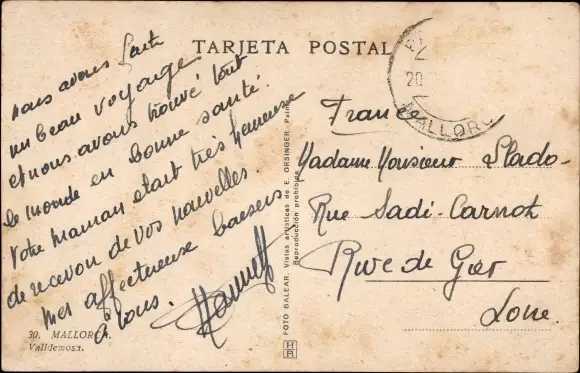 TARJETA POSTAL
nous avons fait
un beau voyage
et nous avons trouvé tout
le monde en bonne santé.
Votre maman etait très heureuse
de recevoir de vos nouvelles.
Mes affectueuse baisers
à tous.
30. MALLORCA.
Valldemosa.
FOTO BALEAR. Vistas artísticas de E. ORSINGER. Palma
Reproducción prohibida
HB
20
MALLORC
France
Madame Monsieur Llado-
Rue Sadi-Carnot
Rive de Gier
Loire.